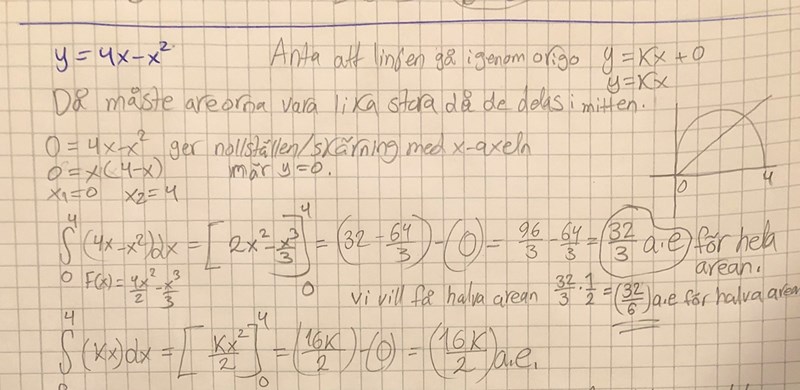 y = 4x - x² Anta att linjen gå igenom origo y = Kx + 0
y = Kx
Då måste areorna vara lika stora då de delas i mitten.
0 = 4x - x² ger nollställen/skärning med x-axeln
0 = x(4-x) när y=0.
x₁=0 x₂=4
0 4
∫₀⁴ (4x-x²)dx = [2x² - x³/3]₀⁴ = (32 - 64/3) - (0) = 96/3 - 64/3 = (32/3 a.e) för hela
F(x) = 4x²/2 - x³/3 arean.
vi vill få halva arean 32/3 · 1/2 = (32/6) a.e för halva arean
∫₀⁴ (Kx)dx = [Kx²/2]₀⁴ = (16K/2) - (0) = (16K/2) a.e.